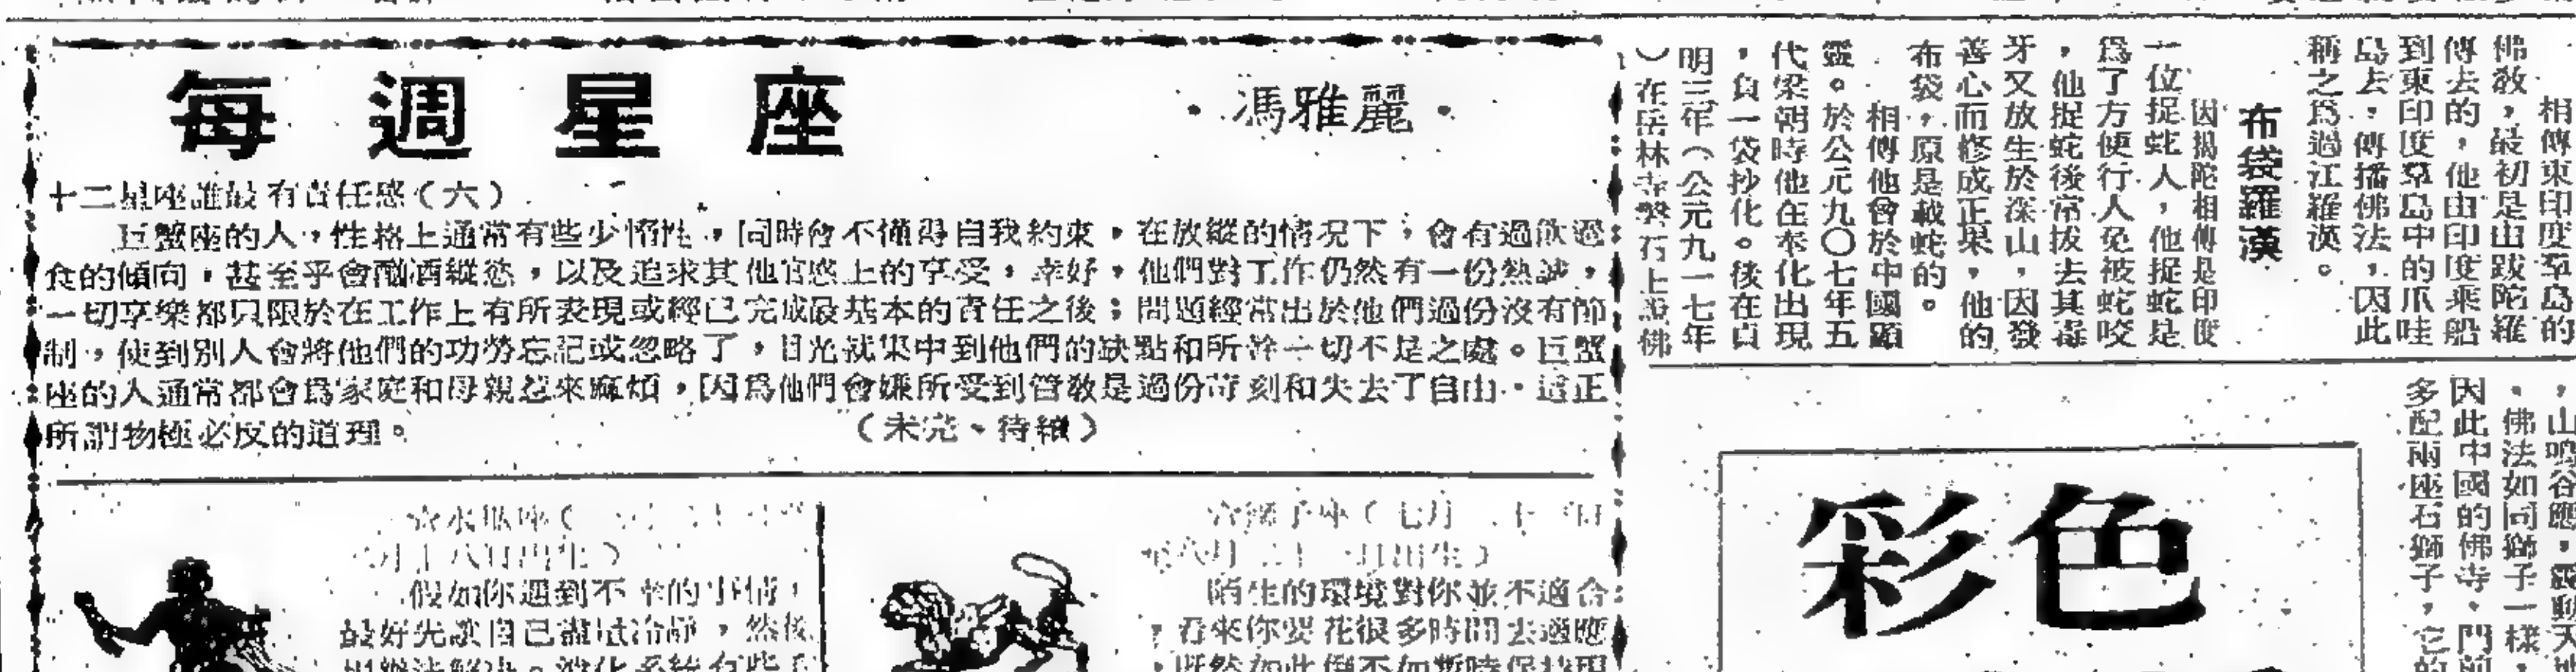 每週星座
·馮雅麗·
十二星座誰最有責任感（六）
巨蟹座的人，性格上通常有些少惰性，同時會不懂得自我約束，在放縱的情況下；會有過飲過
食的傾向，甚至乎會酗酒縱慾，以及追求其他官感上的享受，幸好，他們對工作仍然有一份熱誠，
一切享樂都只限於在工作上有所表現或經已完成最基本的責任之後；問題經常出於他們過份沒有節
制，使到別人會將他們的功勞忘記或忽略了，目光就集中到他們的缺點和所幹一切不是之處。巨蟹
座的人通常都會爲家庭和母親惹來麻煩，因爲他們會嫌所受到管教是過份苛刻和失去了自由．這正
所謂物極必反的道理。
（未完、待續）
假如你遇到不幸的事情，
最好先讓自己盡試冷靜，然後
陌生的環境對你並不適合
，看來你要花很多時間去適應
相傳東印度羣島的
佛教，最初是由跋陀羅
傳去的，他由印度乘船
到東印度羣島中的爪哇
島去，傳播佛法，因此
稱之爲過江羅漢。
布袋羅漢
因揭陀相傳是印度
一位捉蛇人，他捉蛇是
爲了方便行人免被蛇咬
，他捉蛇後常拔去其毒
牙又放生於深山，因發
善心而修成正果，他的
布袋，原是載蛇的。
相傳他曾於中國顯
靈。於公元九〇七年五
代梁朝時他在奉化出現
，負一袋抄化。後在貞
明三年（公元九一七年
）在岳林寺磐石上說佛
，山鳴谷應，震動天
，佛法如同獅子一樣，
因此中國的佛寺，門前
多配兩座石獅子，它的
彩色